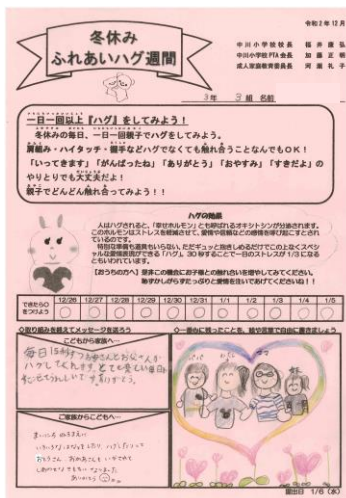 令和2年12月
冬休み
ふれあいハグ週間
中川小学校校長 福井 康弘
中川小学校PTA会長 加藤 正明
成人家庭教育委員長 河原 礼子
3年 組 名前
一日一回以上『ハグ』をしてみよう!
冬休みの毎日、一日一回親子でハグをしてみよう。
肩組み・ハイタッチ・握手などハグでなくても触れ合うことなんでもOK!
「いってきます」「がんばったね」「ありがとう」「おやすみ」「すきだよ」の
やりとりでも大丈夫だよ!
親子でどんどん触れ合ってみよう!!
ハグの効果
人はハグされると、「幸せホルモン」とも呼ばれるオキシトシンが分泌されます。
このホルモンはストレスを軽減させて、愛情や信頼などの感情を呼び起こすとされ
ているのです。
特別な準備も道具もいらない、ただギュッと抱きしめるだけでこの上なくスペシャ
ルな愛情表現ができる「ハグ」。30秒することで一日のストレスが1/3になる
ともいわれています。
【おうちの方へ】是非この機会にお子様との触れ合いを増やしてみてください。
恥ずかしがらずたっぷりと愛情を注いであげてくださいね!!
できたら○をつけよう 12/26 12/27 12/28 12/29 12/30 12/31 1/1 1/2 1/3 1/4 1/5
○ ○ ○ ○ ○ ○ ○ ○ ○ ○ ○
◇取り組みを終えてメッセージを送ろう
◇一番心に残ったことを、絵や言葉で自由に書きましょう
こどもから家族へ…
毎日
お母さんとお父さんが
ハグしてくれます。とても楽しい毎日
ご家族からこどもへ…
ありがとう
提出日 1/6(水)